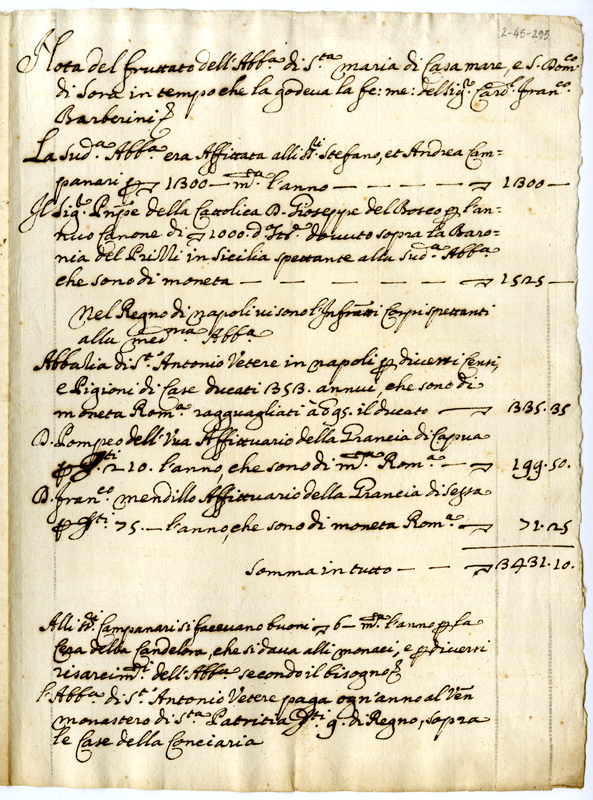 2-45-295
Nota del fruttato dell'Abb.a di S.ta maria di Casa mare, e S. Dom.co
di Sora in tempo che la godeva la fe: me: del sig.r Card.l Fran.co
Barberini
La Sud.a Abb.a era Affittata alli SS.ri Stefano, et Andrea Cam=
panari p 1300 — m.ta l'anno — — — — 1300 —
Il Sig.r Pn̄pe della Cattolica D. Gioseppe del Bosco p l'an=
nuo Canone di 1000. d' dovuto sopra la Baro=
nia del Prizzi in Sicilia spettante alla sud.a Abb.a
che sono di moneta — — — — 1525 —
Nel Regno di napoli vi sono l'Infratti Corpi spettanti
alla med.ma Abb.a
Abbatia di S.to Antonio Vetere in napoli p diversi Censi,
e Pigioni di Case ducati 353. annui, che sono di
moneta Rom.a ragguagliati à 95. il ducato — 335.35
D. Pompeo dell'Uva Affittuario della Grancia di Capua
p d.ti 210. l'anno che sono di m.ta Rom.a — 199.50.
D. Fran.co mendillo Affittuario della Grancia di Sessa
p d.ti 75. — l'anno, che sono di moneta Rom.a — 71.25
Somma in tutto — — 3431.10.
Alli SS.ri Campanari si facevano buoni 6 — m.ta l'anno p la
Cera della Candelora, che si dava alli monaci, e p diversi
risarcim.ti dell'Abb.a secondo il bisogno
l'Abb.a di S.t Antonio Vetere paga ogn'anno al Ven
monastero di S.ta Patritia d.ti 9. di Regno, sopra
le Case della Conciaria